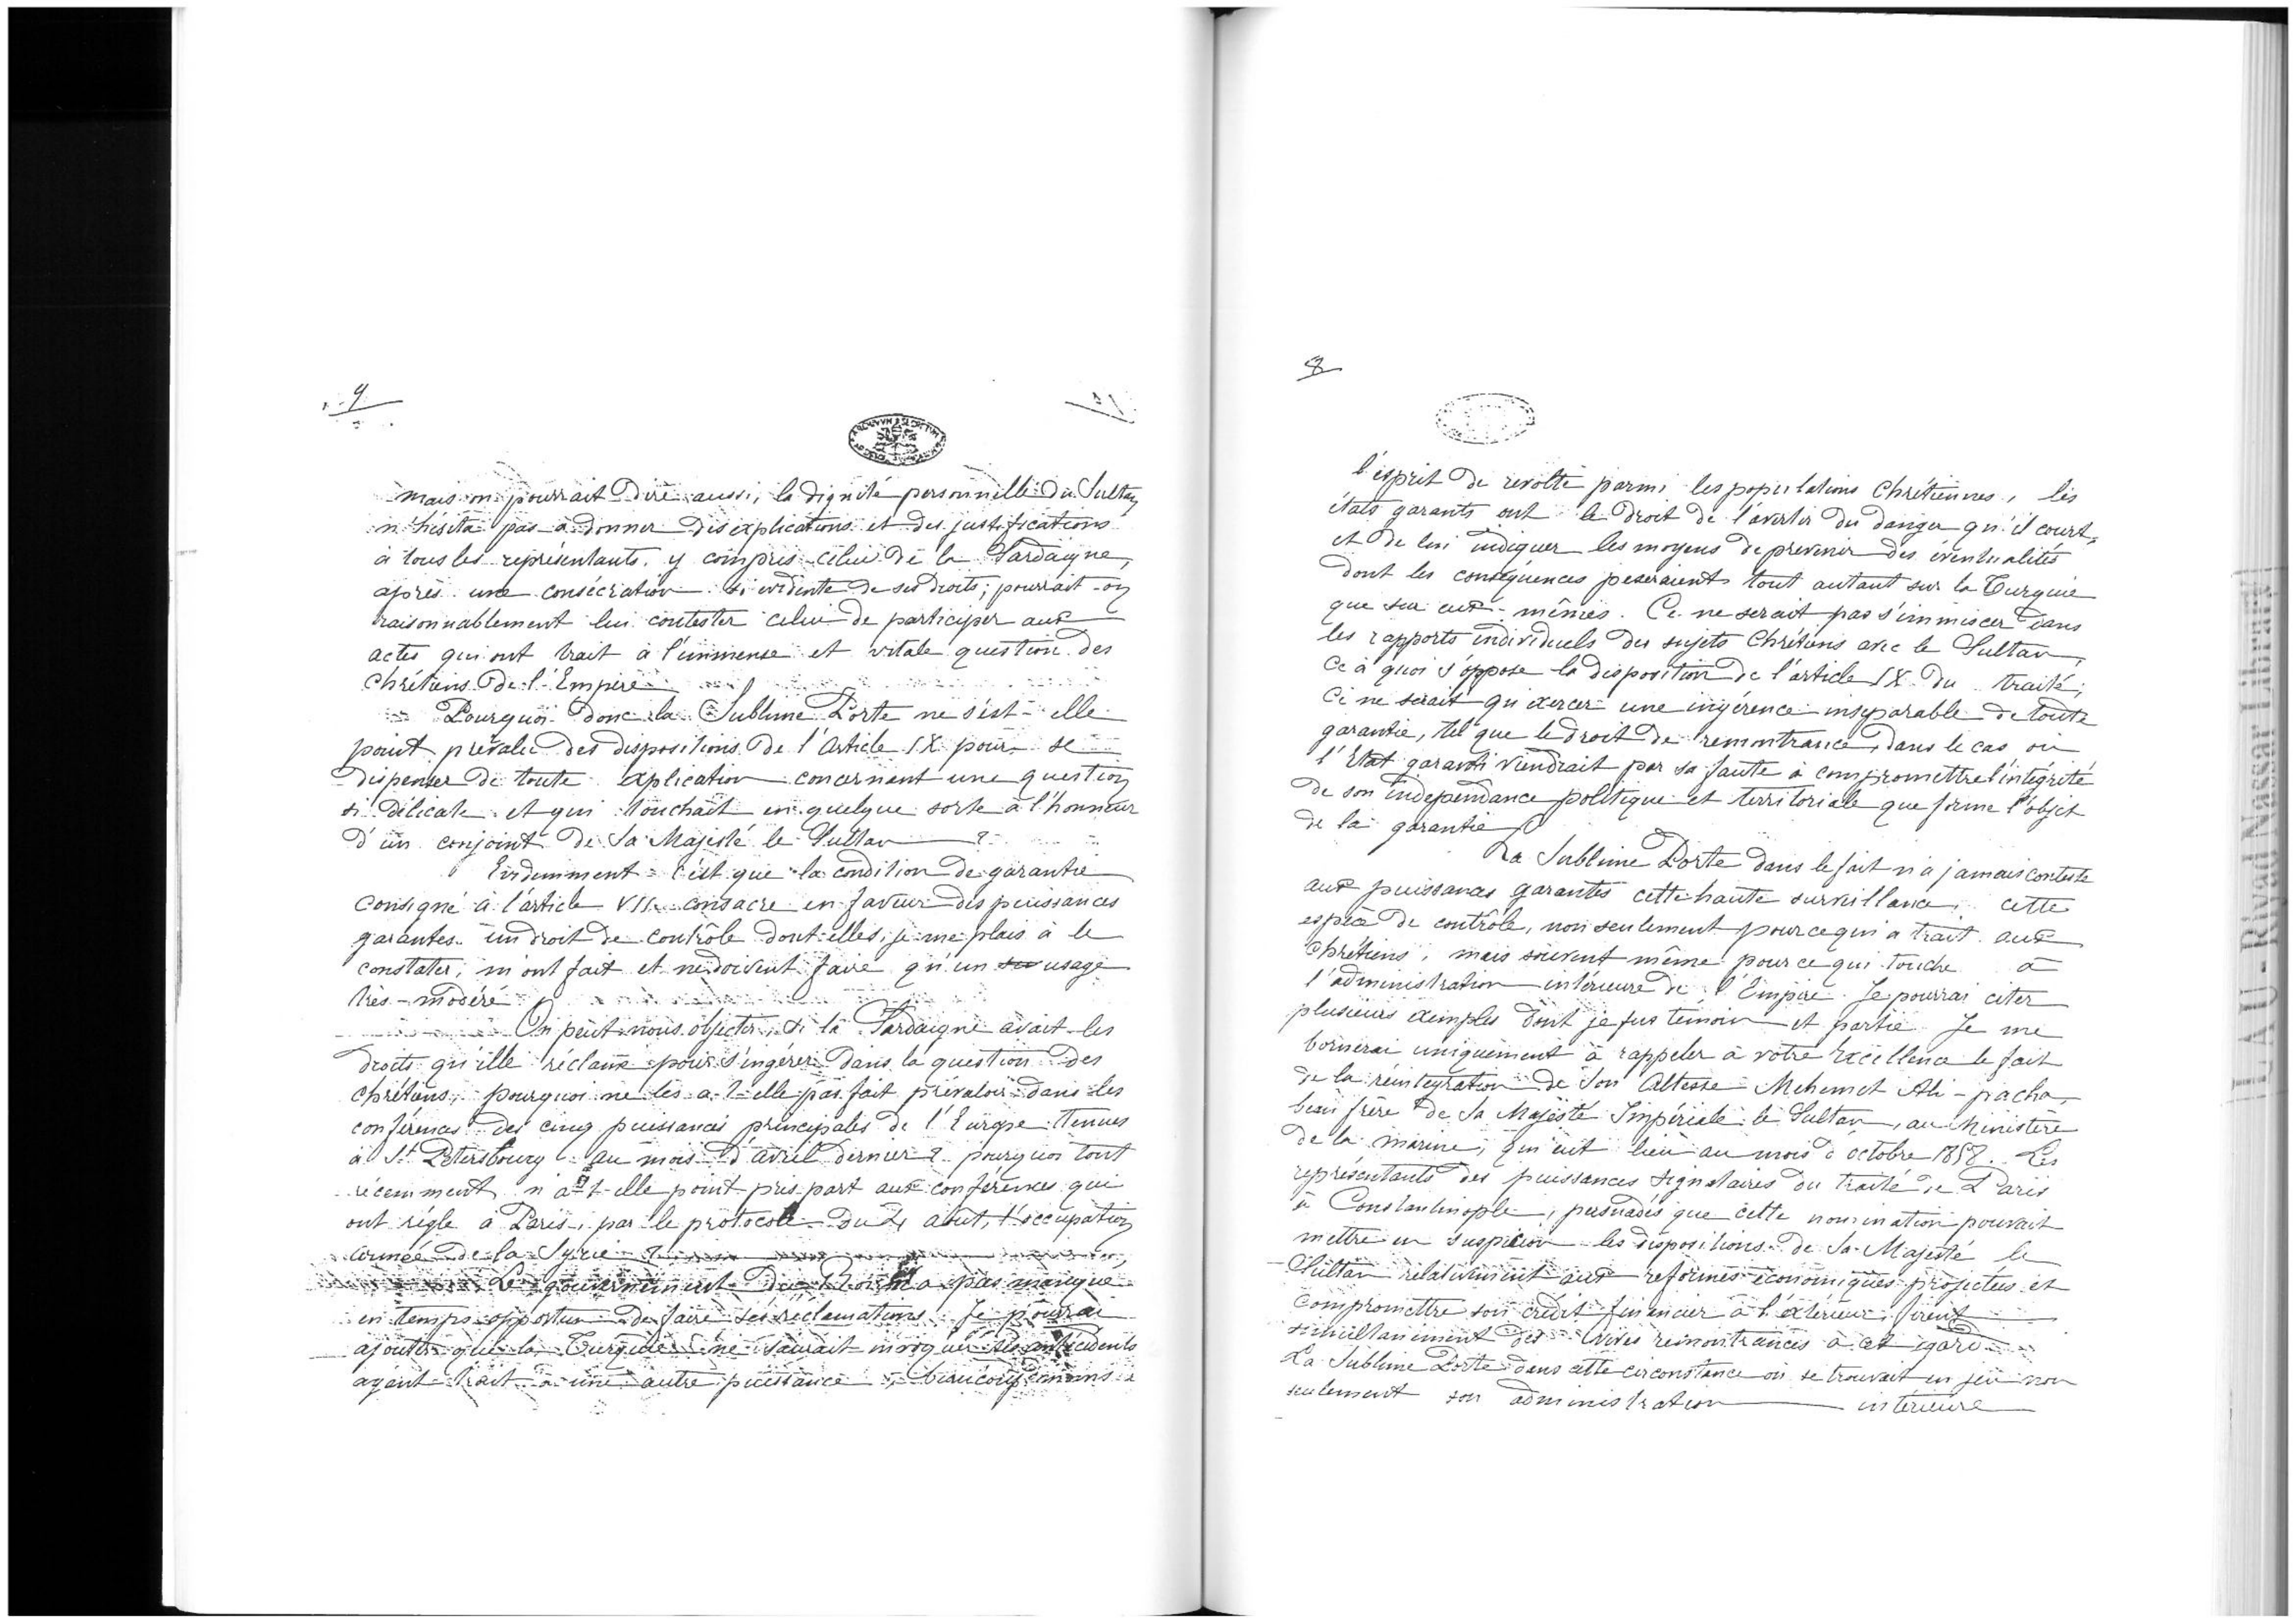 9
mais on pourrait dire aussi, la dignité personnelle du Sultan
n'hésita pas à donner des explications et des justifications
à tous les représentants, y compris celui de la Sardaigne,
après une consécration si evidente de ses droits; pourrait-on
raisonnablement lui contester celui de participer aux
actes qui ont trait à l'immense et vitale question des
Chrétiens de l'Empire
Pourquoi donc la Sublime Porte ne s'est-elle
point prévalu des dispositions de l'Article IX pour se
dispenser de toute explication concernant une question
si délicate et qui touchait en quelque sorte à l'honneur
d'un conjoint de Sa Majesté le Sultan ?
Evidemment c'est que la condition de garantie
consigné à l'article VII consacre en faveur des puissances
garantes un droit de contrôle dont elles, je me plais à le
constater, n'ont fait et ne doivent faire qu'un usage
très-modéré
On peut nous objecter, si la Sardaigne avait les
droits qu'elle réclame pour s'ingérer dans la question des
Chrétiens, pourquoi ne les a-t-elle pas fait prévaloir dans les
conférences des cinq puissances principales de l'Europe tenues
à St Petersbourg au mois d'avril dernier? pourquoi tout
récemment n'a-t-elle point pris part aux conférences qui
ont réglé à Paris, par le protocole du août, l'occupation
armée de la Syrie ?
Le gouvernement du Roi n'a pas manqué
en temps opportun de faire ses réclamations. Je pourrai
ajouter que la Turquie ne saurait invoquer les antécidents
ayant trait à une autre puissance, beaucoup moins
8
l'esprit de revolte parmi les populations Chrétiennes, les
états garants ont le droit de l'avertir du danger qu'il court,
et de lui indiquer les moyens de prevenir des éventualités
dont les conséquences peseraient tout autant sur la Turquie
que sur eux-mêmes. Ce ne serait pas s'immiscer dans
les rapports individuels des sujets Chrétiens avec le Sultan,
ce à quoi s'oppose la disposition de l'article IX du traité;
ce ne serait qu'exercer une ingérence inséparable de toute
garantie, tel que le droit de remontrance, dans le cas où
l'Etat garanti viendrait par sa faute à compromettre l'intégrité
de son independance politique et territoriale que forme l'objet
de la garantie
La Sublime Porte dans le fait n'a jamais contesté
aux puissances garantes cette haute surveillance, cette
espèce de contrôle, non seulement pour ce qui a trait aux
Chrétiens, mais souvent même pour ce qui touche à
l'administration intérieure de l'Empire. Je pourrai citer
plusieurs exemples dont je fus témoin et partie. Je me
bornerai uniquement à rappeler à votre Excellence le fait
de la réintégration de Son Altesse Mehemet Ali-pacha,
beau frère de Sa Majesté Impériale le Sultan, au Ministère
de la marine, qui eut lieu au mois d'octobre 1858. Les
représentants des puissances signataires du traité de Paris
à Constantinople, persuadés que cette nomination pouvait
mettre en suspicion les dispositions de Sa Majesté le
Sultan relativement aux reformes économiques projetées et
compromettre son crédit financier à l'extérieur, firent
simultanément des vives remontrances à cet égard
La Sublime Porte dans cette circonstance où se trouvait en jeu non
seulement son administration intérieure
LAU - Riyad Nassar Library